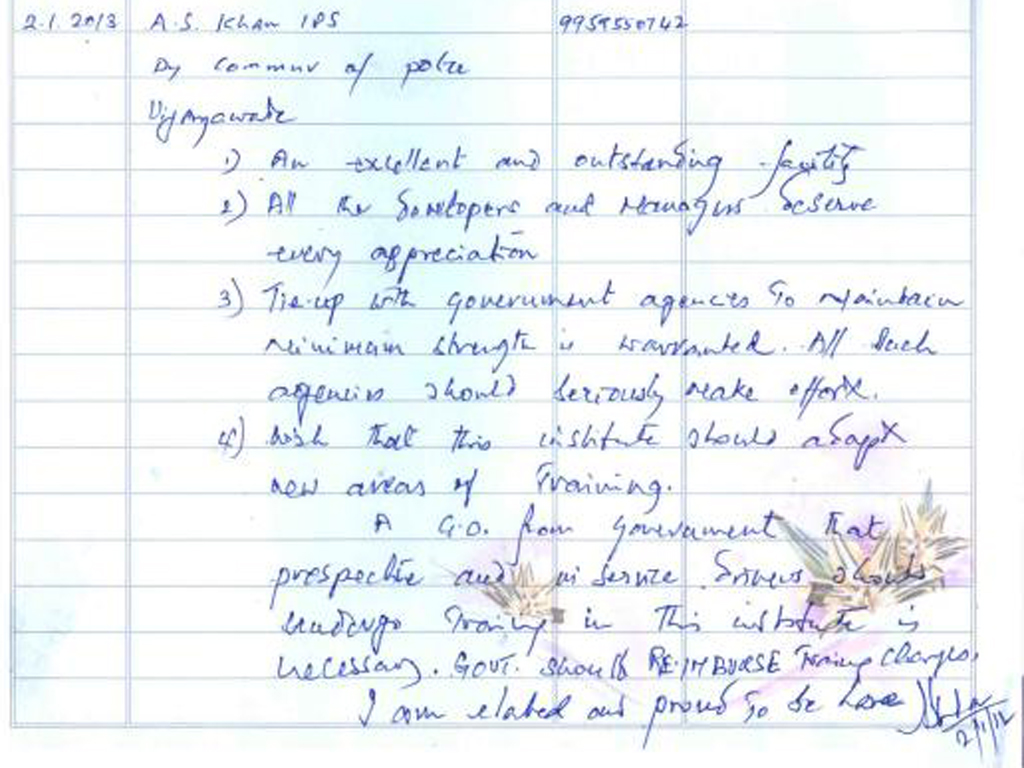 2.1.2013 A.S. Khan IPS 9959550742
Dy Commnr of police
Vijayawada
1) An excellent and outstanding facility
2) All the developers and managers deserve
every appreciation
3) Tie-up with government agencies to maintain
minimum strength is warranted. All such
agencies should seriously make effort.
4) Wish that this institute should adapt
new areas of Training.
A G.O. from government that
prospective and in service drivers should
undergo training in this institute is
necessary. GOVT. should RE-IMBURSE Training charges.
I am elated and proud to be here
2/1/12